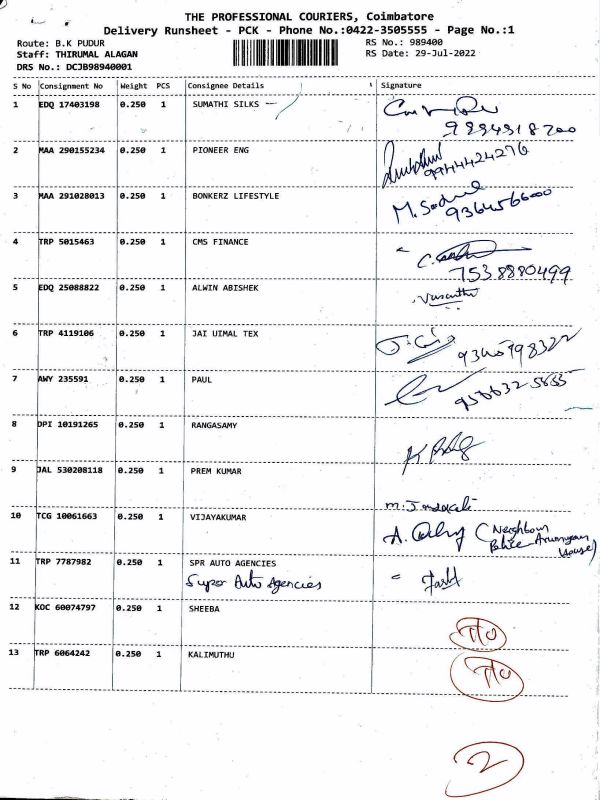 THE PROFESSIONAL COURIERS, Coimbatore
Delivery Runsheet - PCK - Phone No.:0422-3505555 - Page No.:1
Route: B.K PUDUR RS No.: 989400
Staff: THIRUMAL ALAGAN RS Date: 29-Jul-2022
DRS No.: DCJB98940001
S No Consignment No Weight PCS Consignee Details Signature
1 EDQ 17403198 0.250 1 SUMATHI SILKS
9894918200
2 MAA 290155234 0.250 1 PIONEER ENG
9944424276
3 MAA 291028013 0.250 1 BONKERZ LIFESTYLE
9364566600
4 TRP 5015463 0.250 1 CMS FINANCE
7538880499
5 EDQ 25088822 0.250 1 ALWIN ABISHEK Vasantha
6 TRP 4119106 0.250 1 JAI UIMAL TEX
7 AWY 235591 0.250 1 PAUL
8 DPI 10191265 0.250 1 RANGASAMY
9 JAL 530208118 0.250 1 PREM KUMAR
10 TCG 10061663 0.250 1 VIJAYAKUMAR
(Neighbour
House)
11 TRP 7787982 0.250 1 SPR AUTO AGENCIES
Super Auto Agencies
12 KOC 60074797 0.250 1 SHEEBA
13 TRP 6064242 0.250 1 KALIMUTHU
2